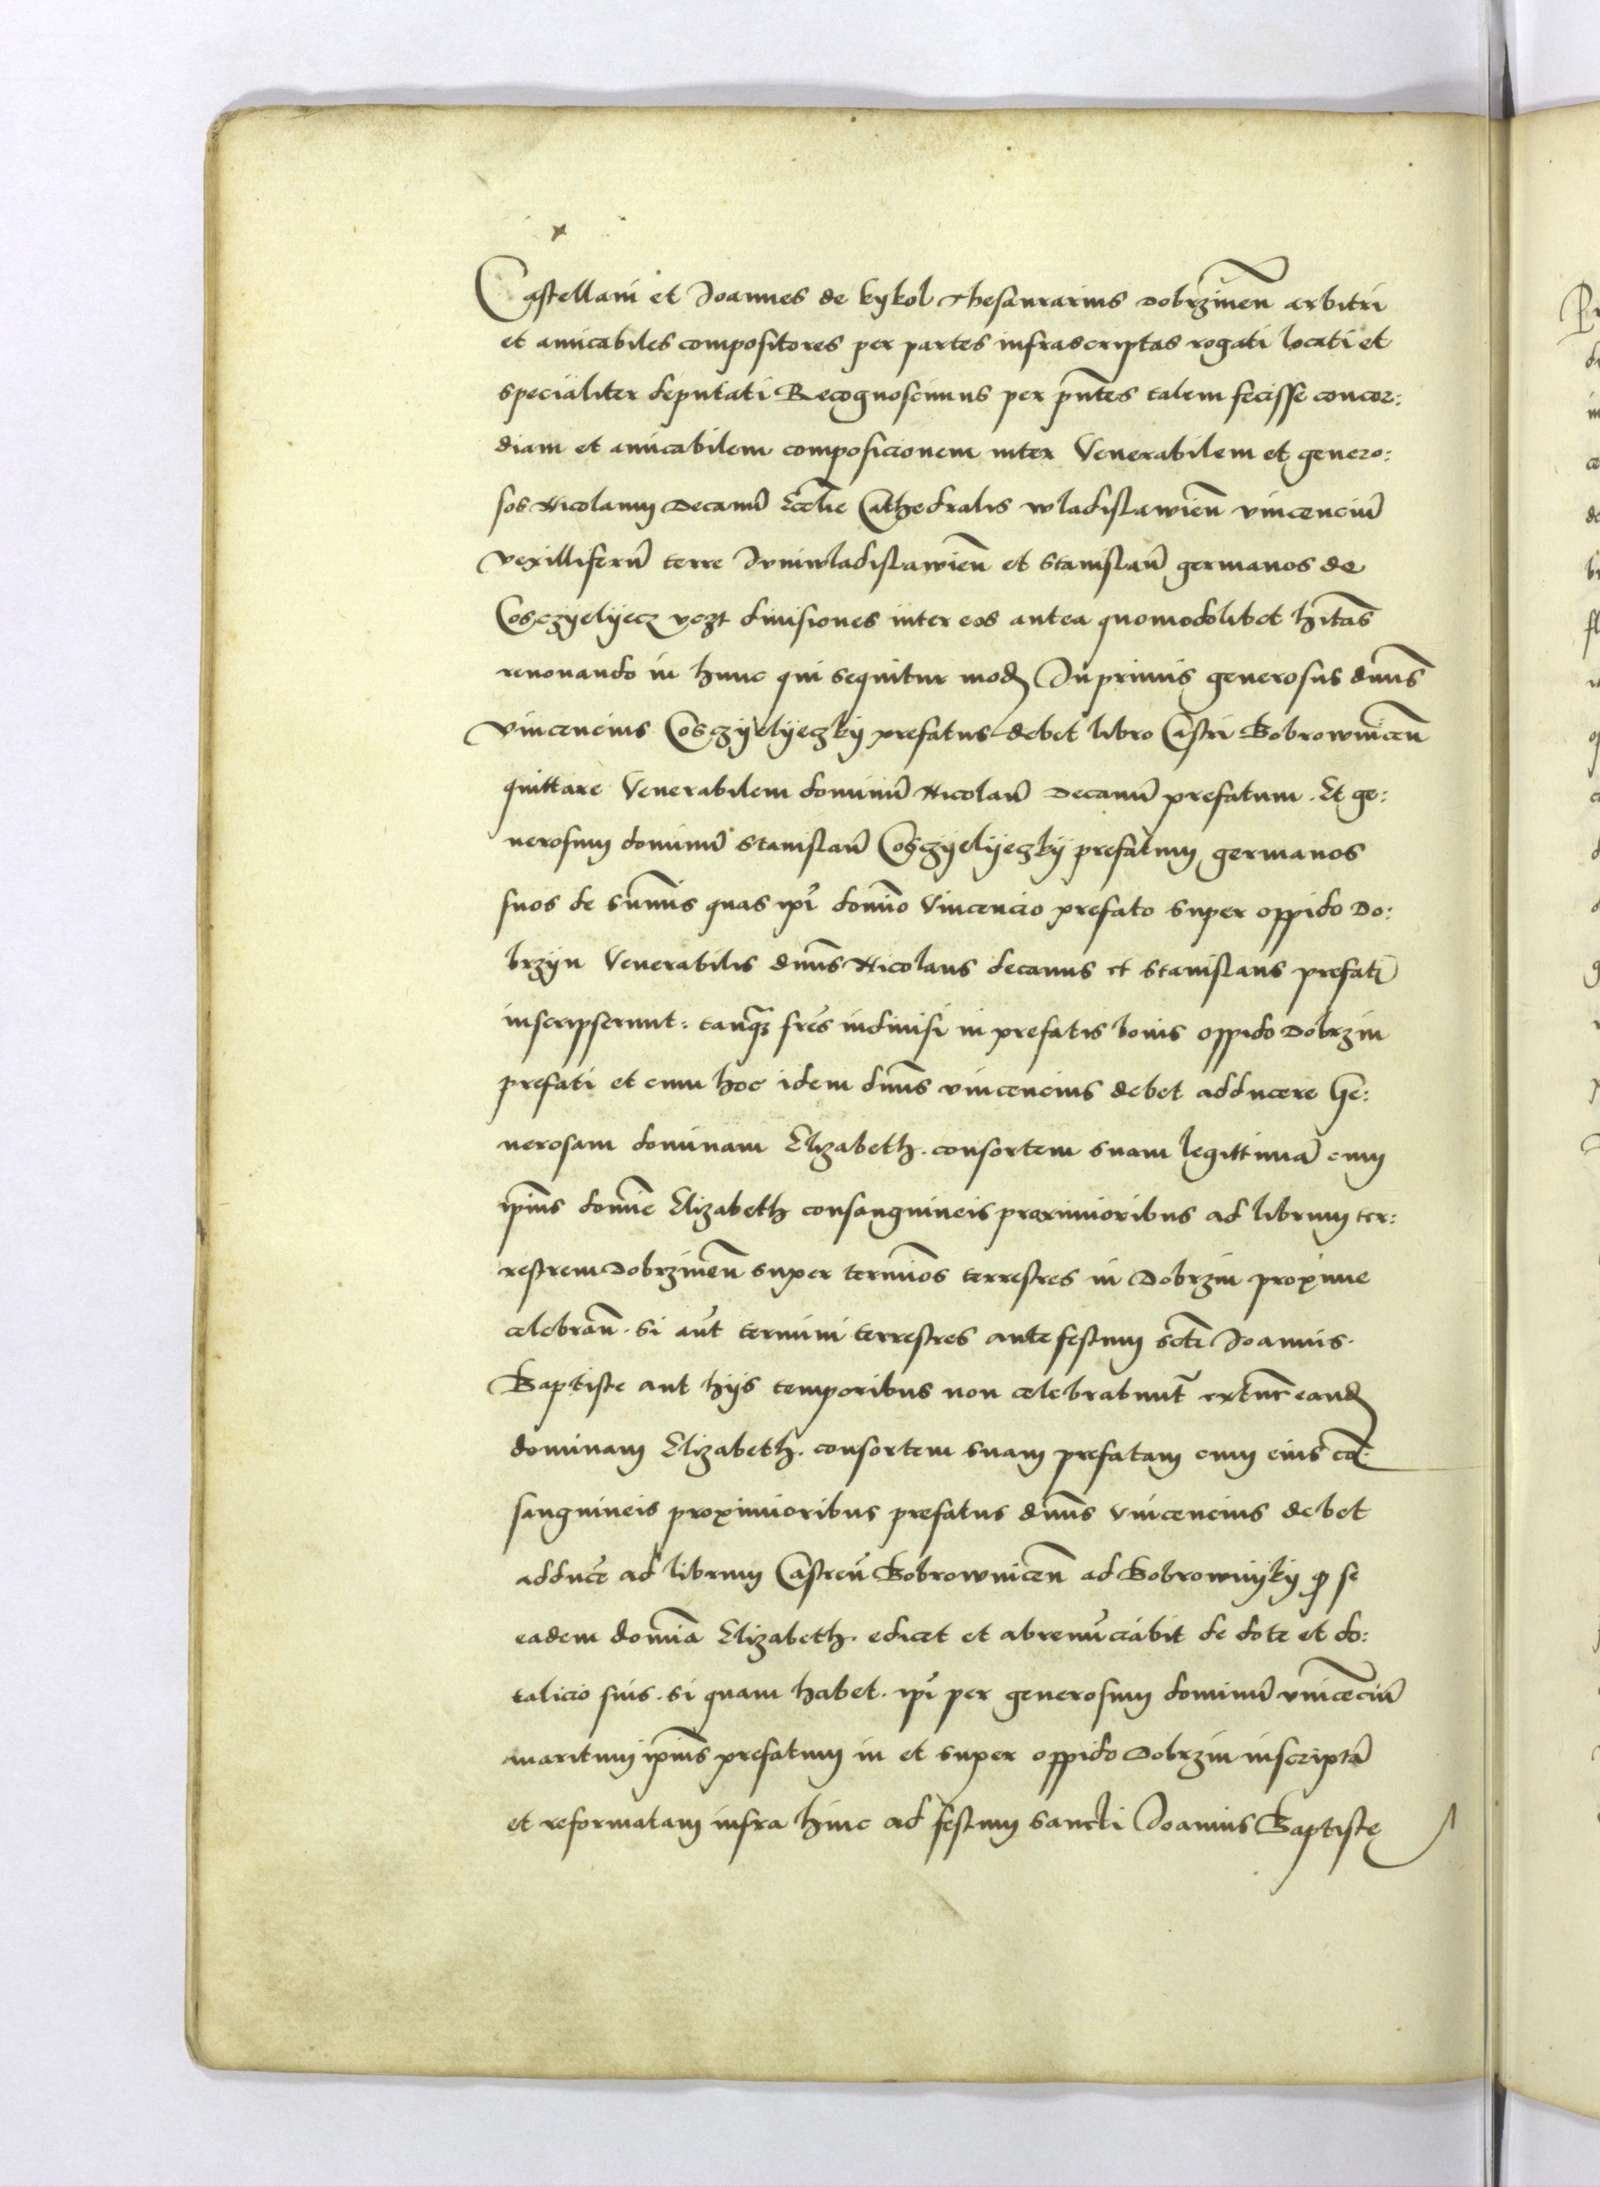 Castellani et Joannes de kykol Thesaurarius Dobrzinen̄ arbitri
et amicabiles compositores per partes infrascriptas rogati locati et
specialiter deputati Recognoscimus per pn̄tes talem fecisse concor:
diam et amicabilem composicionem inter Venerabilem et genero:
sos Nicolaum Decanū Eccl̄ie Cathedralis wladislawien̄ vincenciū
vexilliferū terre Juniwladislawien̄ et Stanislaū germanos de
Cosczyelyecz vczt diuisiones inter eos antea quomodolibet hītas
renouando in hunc qui sequitur mod Inprimis generosus dnūs
Vincencius Cosczyelyeczky prefatus debet libro Castri Bobrownicen̄
quittare Venerabilem dominū Nicolaū Decanū prefatum. Et ge:
nerosum dominū Stanislaū Cosczyelyeczky prefatum germanos
suos de sūmis quas ipī domīno Vincencio prefato super oppido Do:
brzyn Venerabilis dnūs Nicolaus decanus et Stanislaus prefati
inscripserunt: tanq̄ fres indiuisi in prefatis bonis oppido Dobrzin
prefati et cum hoc idem dnūs vincencius debet adducere Ge:
nerosam dominam Elizabeth. consortem suam legittimā cum
ipīus domīne Elizabeth consanguineis proximioribus ad librum ter:
restrem Dobrzinen̄ super termīos terrestres in Dobrzin proxime
celebran̄. Si aut̄ termini terrestres ante festum scti Joannis.
Baptiste aut hijs temporibus non celebrabunt̄ extunc eand
dominam Elizabeth. consortem suam prefatam cum eius cō:
sanguineis proximioribus prefatus dnūs Vincencius debet
adduce ad librum Castren̄ Bobrownicen̄ ad Bobrownyky q se
eadem domīa Elizabeth. edicet et abrenūciabit de dote et do:
talicio suis. si quam habet. ipī per generosum dominū vincēciū
maritum ipīus prefatum in et super oppido Dobrzin inscriptā
et reformatam infra hinc ad festum sancti Joannis Baptiste